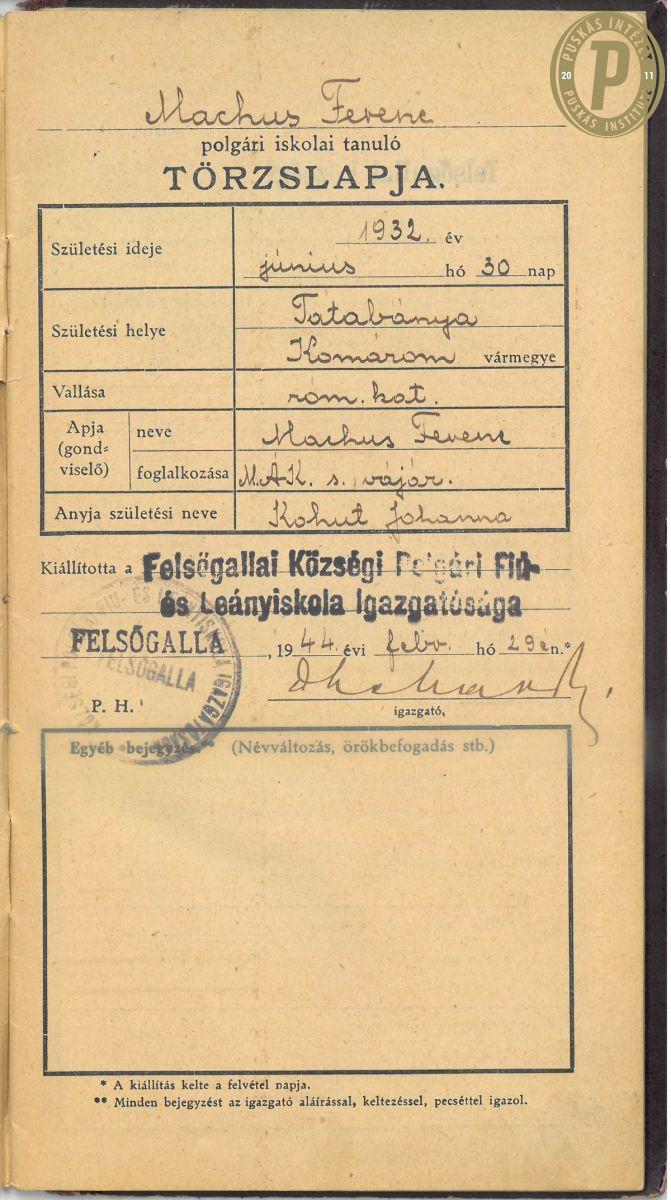 PUSKÁS INTÉZET
20 P 11
PUSKÁS INSTITUTE
Machus Ferenc
polgári iskolai tanuló
TÖRZSLAPJA.
Születési ideje
1932. év
június hó 30 nap
Születési helye
Tatabánya
Komárom vármegye
Vallása
róm. kat.
Apja (gondviselő)
neve
Machus Ferenc
foglalkozása
M.Á.K. s. vájár.
Anyja születési neve
Kohut Johanna
Kiállította a Felsőgallai Községi Polgári Fiú-
és Leányiskola Igazgatósága
FELSŐGALLA, 1944. évi febr. hó 29én.*
FELSŐGALLA
P. H.
igazgató,
Egyéb bejegyzés.** (Névváltozás, örökbefogadás stb.)
* A kiállítás kelte a felvétel napja.
** Minden bejegyzést az igazgató aláírással, keltezéssel, pecséttel igazol.